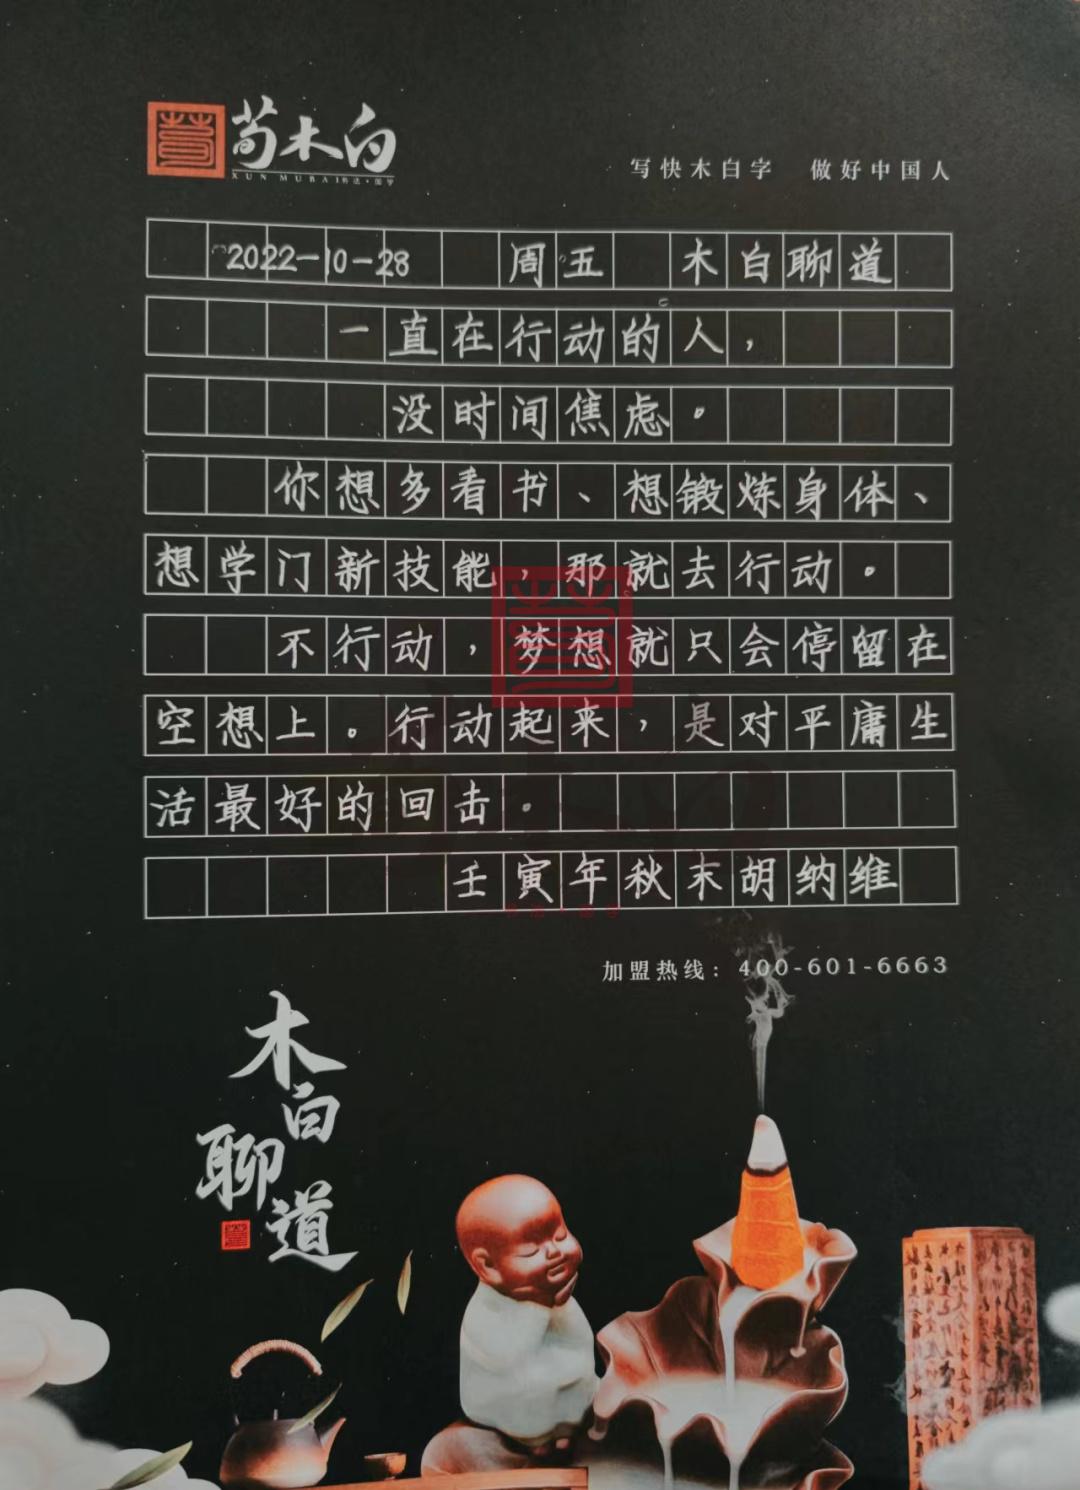 荀木白
XUN MUBAI 书法·国学
写快木白字 做好中国人
2022-10-28 周五 木白聊道
一直在行动的人，
没时间焦虑。
你想多看书、想锻炼身体、
想学门新技能，那就去行动。
不行动，梦想就只会停留在
空想上。行动起来，是对平庸生
活最好的回击。
壬寅年秋末胡纳维
加盟热线：400-601-6663
木白聊道